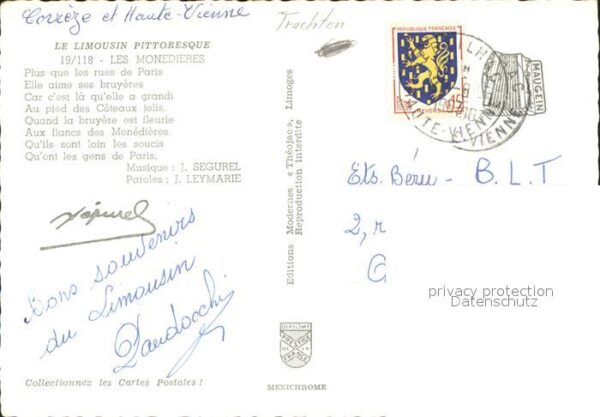 Corrèze et Haute-Vienne
Trachten
LE LIMOUSIN PITTORESQUE
19/118 - LES MONEDIERES
Plus que les rues de Paris
Elle aime ses bruyères
Car c'est là qu'elle a grandi
Au pied des Côteaux jolis.
Quand la bruyère est fleurie
Aux flancs des Monédières
Qu'ils sont loin les soucis
Qu'ont les gens de Paris.
Musique : J. SEGUREL
Paroles : J. LEYMARIE
Ségurel
Bons souvenirs
du Limousin
Collectionnez les Cartes Postales !
Editions Modernes « Théojac », Limoges
Reproduction interdite
DIPLOME
PRESTIGE
DE LA
FRANCE
MEXICHROME
HAUTE-VIENNE
MAUGEIN
Ets. Béru - B.L.T
2, r
G
privacy protection
Datenschutz